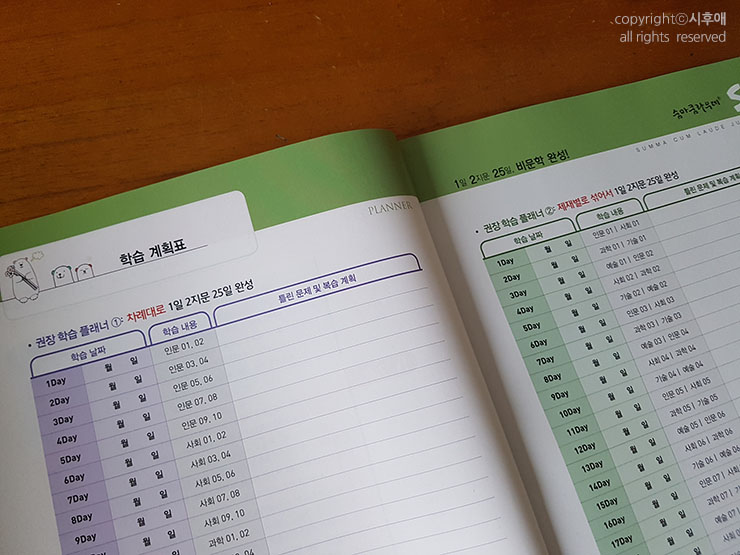 copyrightⓒ시후애
all rights reserved
학습 계획표
PLANNER
• 권장 학습 플래너 ①: 차례대로 1일 2지문 25일 완성
학습 날짜 학습 내용 틀린 문제 및 복습 계획
1Day 월 일 인문 01, 02
2Day 월 일 인문 03, 04
3Day 월 일 인문 05, 06
4Day 월 일 인문 07, 08
5Day 월 일 인문 09, 10
6Day 월 일 사회 01, 02
7Day 월 일 사회 03, 04
8Day 월 일 사회 05, 06
9Day 월 일 사회 07, 08
월 일 사회 09, 10
과학 01, 02
숨마쿰라우데
SUMMA CUM LAUDE
1일 2지문 25일, 비문학 완성!
• 권장 학습 플래너 ②: 제재별로 섞어서 1일 2지문 25일 완성
학습 날짜 학습 내용 틀린 문제 및 복습 계획
1Day 월 일 인문 01 | 사회 01
2Day 월 일 과학 01 | 기술 01
3Day 월 일 예술 01 | 인문 02
4Day 월 일 사회 02 | 과학 02
5Day 월 일 기술 02 | 예술 02
6Day 월 일 인문 03 | 사회 03
7Day 월 일 과학 03 | 기술 03
8Day 월 일 예술 03 | 인문 04
9Day 월 일 사회 04 | 과학 04
10Day 월 일 기술 04 | 예술 04
11Day 월 일 인문 05 | 사회 05
12Day 월 일 과학 05 | 기술 05
13Day 월 일 예술 05 | 인문 06
14Day 월 일 사회 06 | 과학 06
15Day 월 일 기술 06 | 예술 06
16Day 월 일 인문 07 | 사
17Day 월 일 과학 07 | 기
예술 07 |